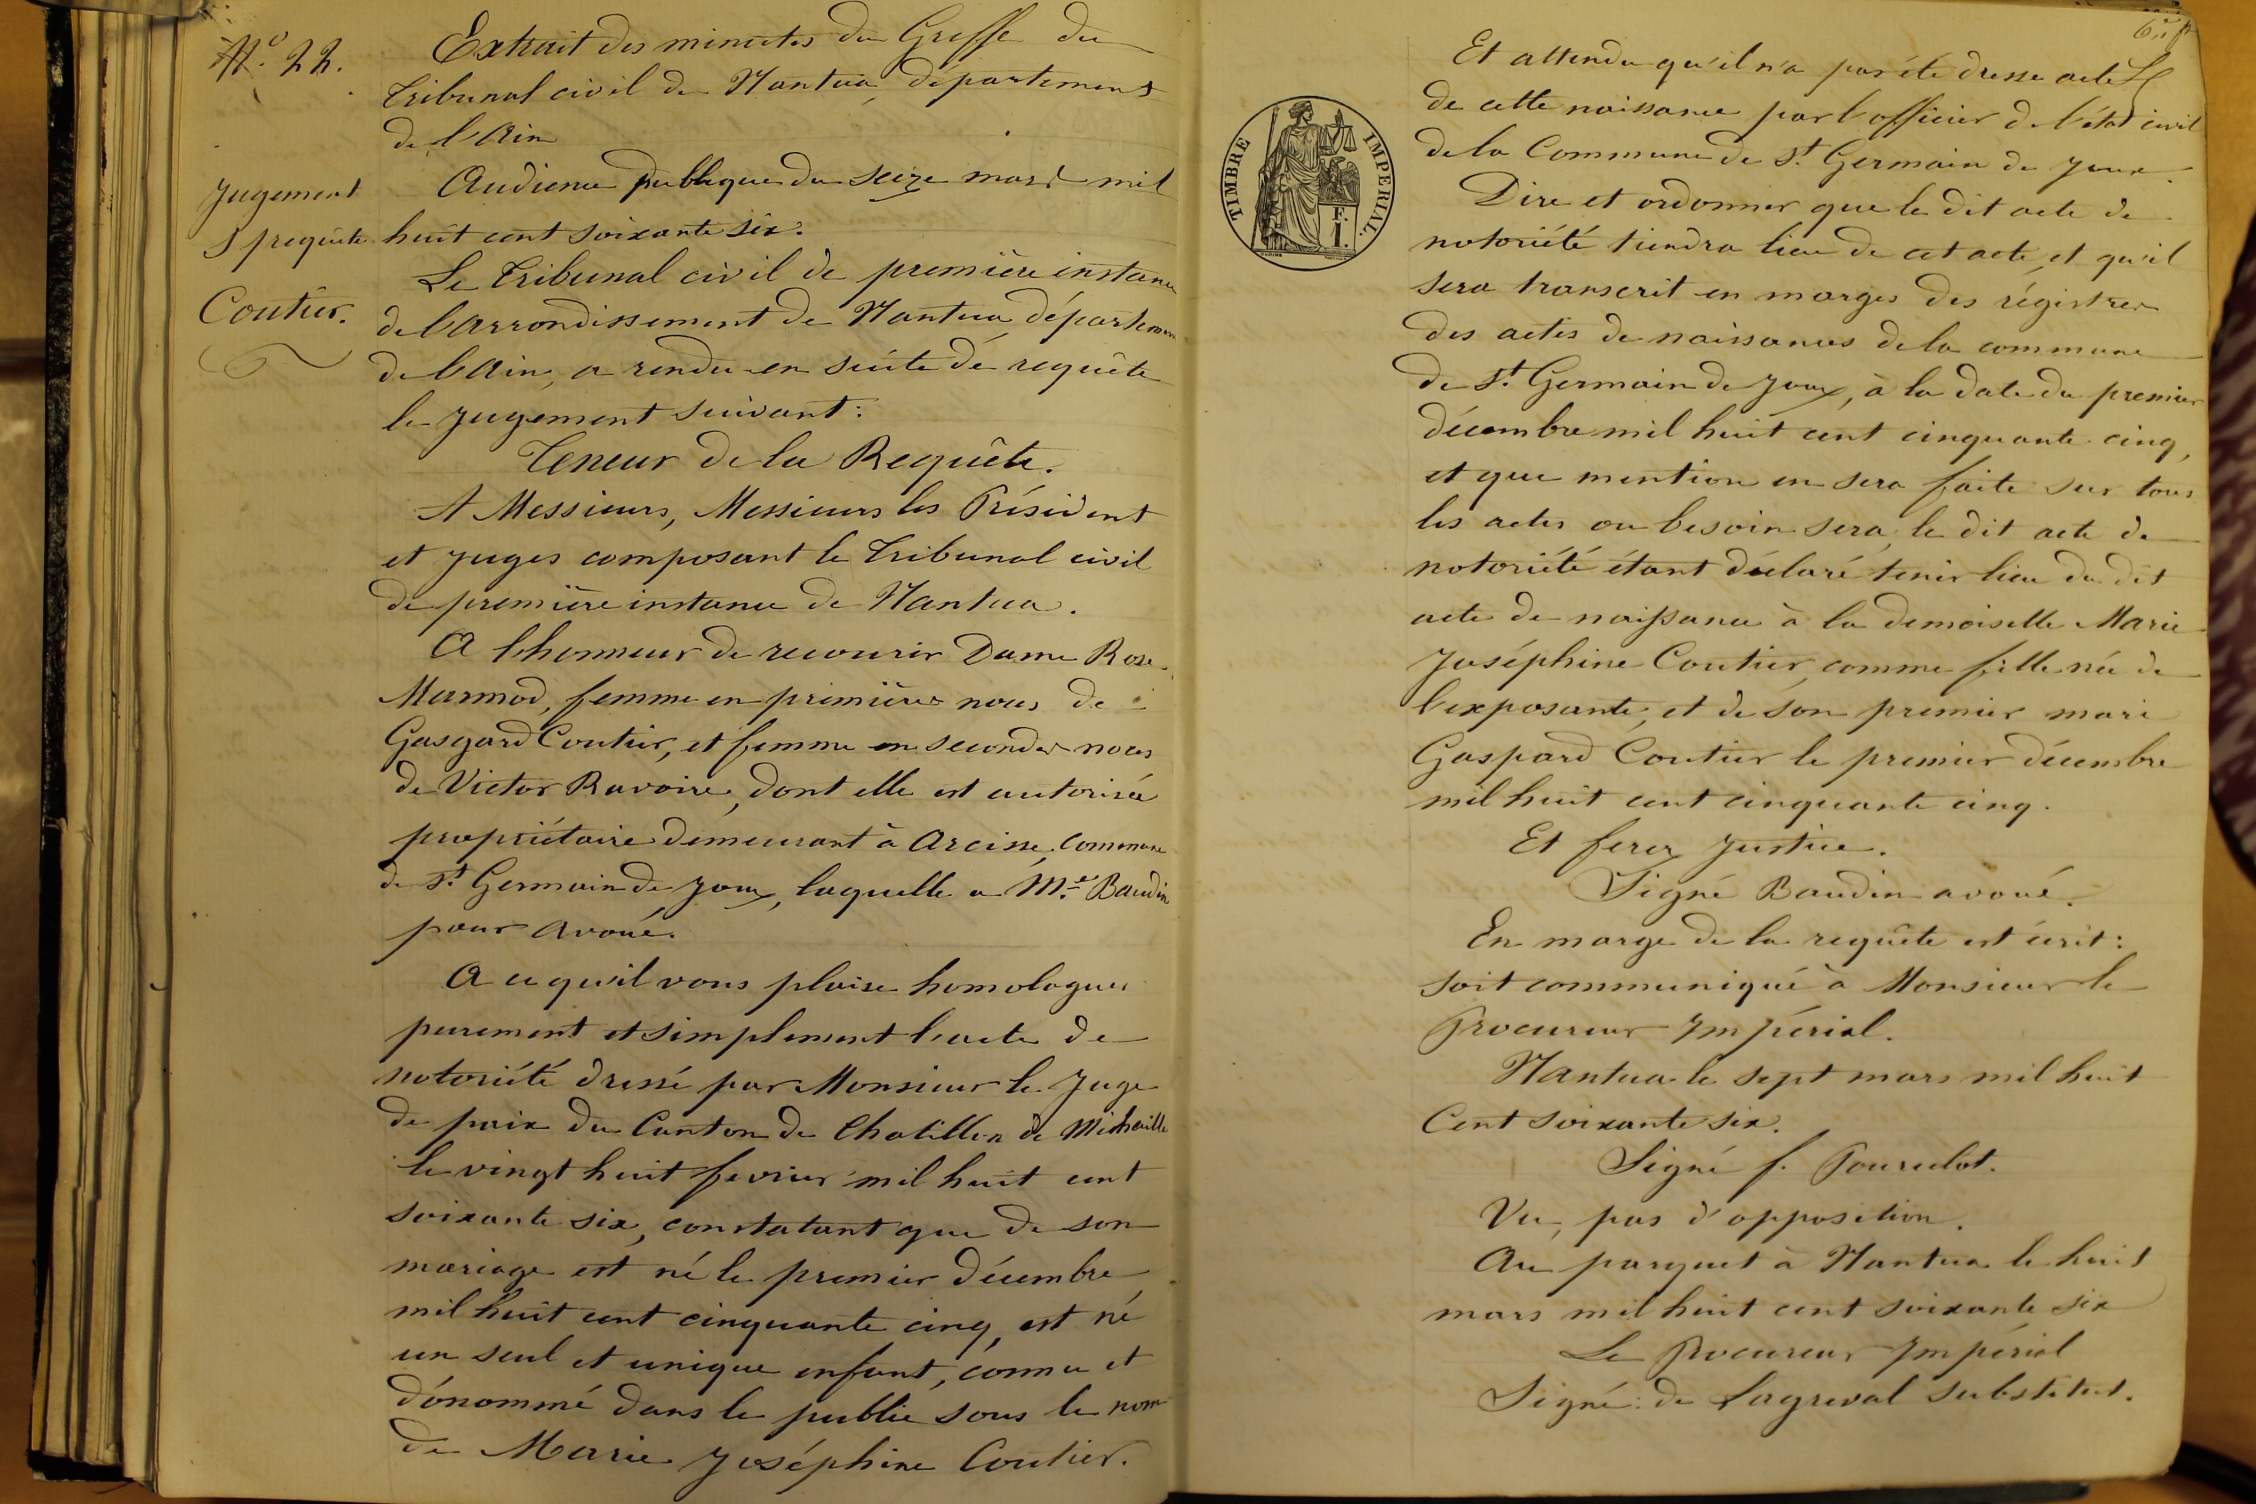 N.o 22.
Jugement
s/ requête
Coutier.
Extrait des minutes du Greffe du
tribunal civil de Nantua, département
de l'Ain
Audience publique du seize mars mil
huit cent soixante six.
Le tribunal civil de première instance
de l'arrondissement de Nantua, département
de l'Ain, a rendu en suite de requête
le jugement suivant:
Teneur de la Requête.
A Messieurs, Messieurs les Président
et juges composant le tribunal civil
de première instance de Nantua.
A l'honneur de recourir Dame Rose
Marmod, femme en premières noces de
Gaspard Coutier, et femme en secondes noces
de Victor Ravoire, dont elle est autorisée
propriétaire demeurant à Arcisse, commune
de St. Germain de Joux, laquelle a Me. Baudin
pour avoué.
A ce qu'il vous plaise homologuer
purement et simplement l'acte de
notoriété dressé par Monsieur le Juge
de paix du Canton de Chatillon de Michaille
le vingt huit fevrier mil huit cent
soixante six, constatant que de son
mariage est né le premier décembre
mil huit cent cinquante cinq, est né
un seul et unique enfant, connu et
dénommé dans le public sous le nom
de Marie Joséphine Coutier.
Et attendu qu'il n'a pas été dressé acte
de cette naissance par l'officier de l'état civil
de la Commune de St. Germain de Joux.
Dire et ordonner que le dit acte de
notoriété tiendra lieu de cet acte, et qu'il
sera transcrit en marges des régistres
des actes de naissances de la commune
de St. Germain de Joux, à la date du premier
décembre mil huit cent cinquante cinq,
et que mention en sera faite sur tous
les actes ou besoin sera, le dit acte de
notoriété étant déclaré tenir lieu du dit
acte de naissance à la demoiselle Marie
Joséphine Coutier, comme fille née de
l'exposante, et de son premier mari
Gaspard Coutier le premier décembre
mil huit cent cinquante cinq.
Et ferez justice.
Signé Baudin avoué.
En marge de la requête est écrit:
soit communiqué à Monsieur le
Procureur Impérial.
Nantua le sept mars mil huit
Cent soixante six.
Signé f.
Vu, pas d'opposition.
Au parquet à Nantua le huit
mars mil huit cent soixante six
Le Procureur Impérial
Signé: de Lagreval substitut.
TIMBRE IMPERIAL.
E.
I.